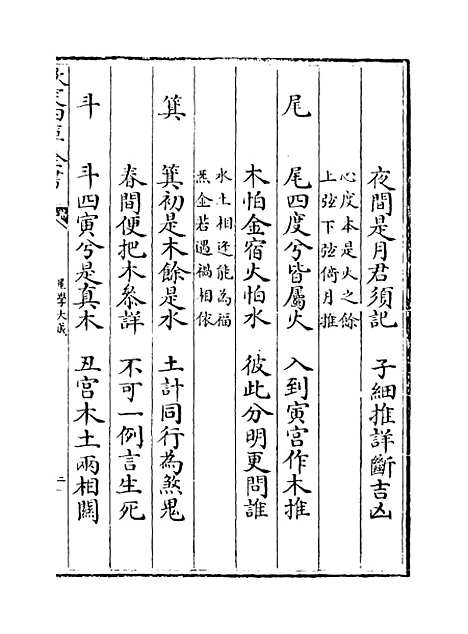 夜間是月君須記 子細推詳斷吉凶
心度本是火之餘
上弦下弦倚月推
尾 尾四度兮皆屬火 入到寅宮作木推
木怕金宿火怕水 彼此分明更問誰
水土相逢能為福
炁金若遇禍相依
箕 箕初是木餘是水 土計同行為煞鬼
春間便把木叅詳 不可一例言生死
斗 斗四寅兮是真木 丑宮木土兩相關
欽定四庫全書
星學大成
二